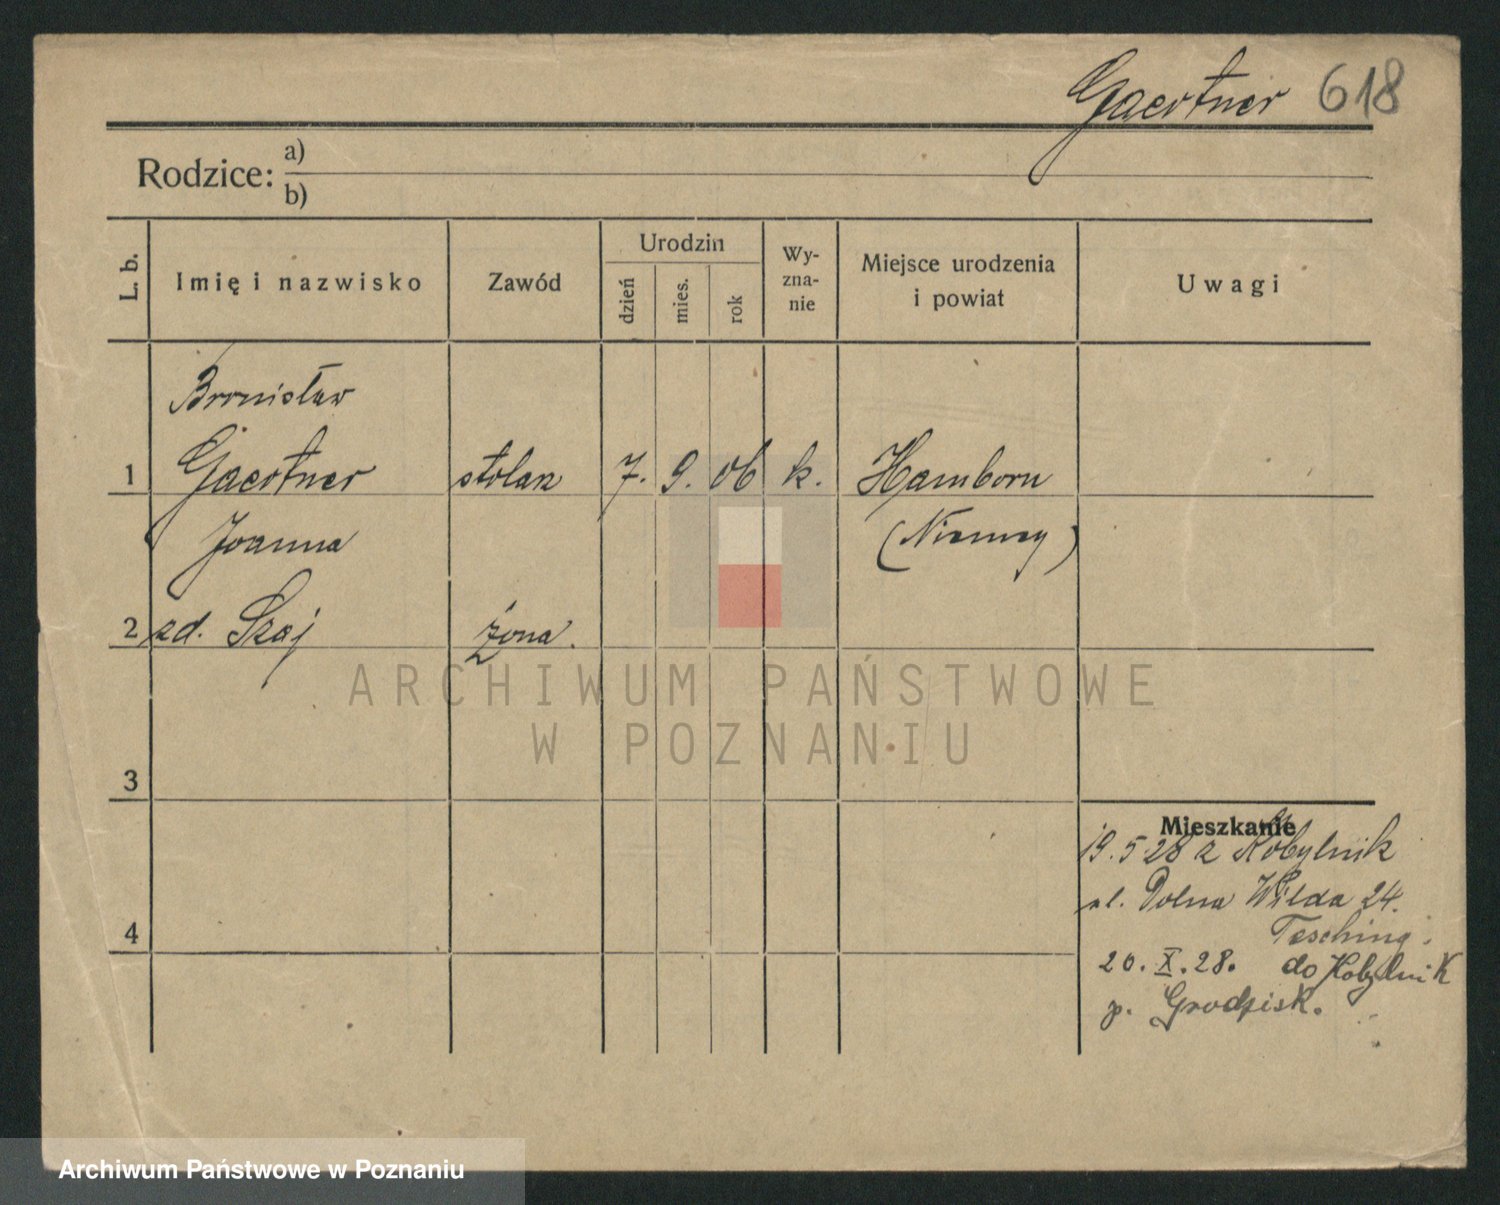 Gaertner 618
Rodzice: a)
b)
L. b.
Imię i nazwisko
Zawód
Urodzin
dzień
mies.
rok
Wy-
zna-
nie
Miejsce urodzenia
i powiat
Uwagi
Bronisław
1 Gaertner stolarz 7. 9. 06 k. Hamborn
Joanna (Niemcy)
2 zd. Szaj żona.
ARCHIWUM PAŃSTWOWE
W POZNANIU
3
Mieszkanie
19.5.28 z Kobylnik
ul. Dolna Wilda 24.
4
Tesching.
20. X. 28. do Kobylnik
p. Grodzisk.
Archiwum Państwowe w Poznaniu